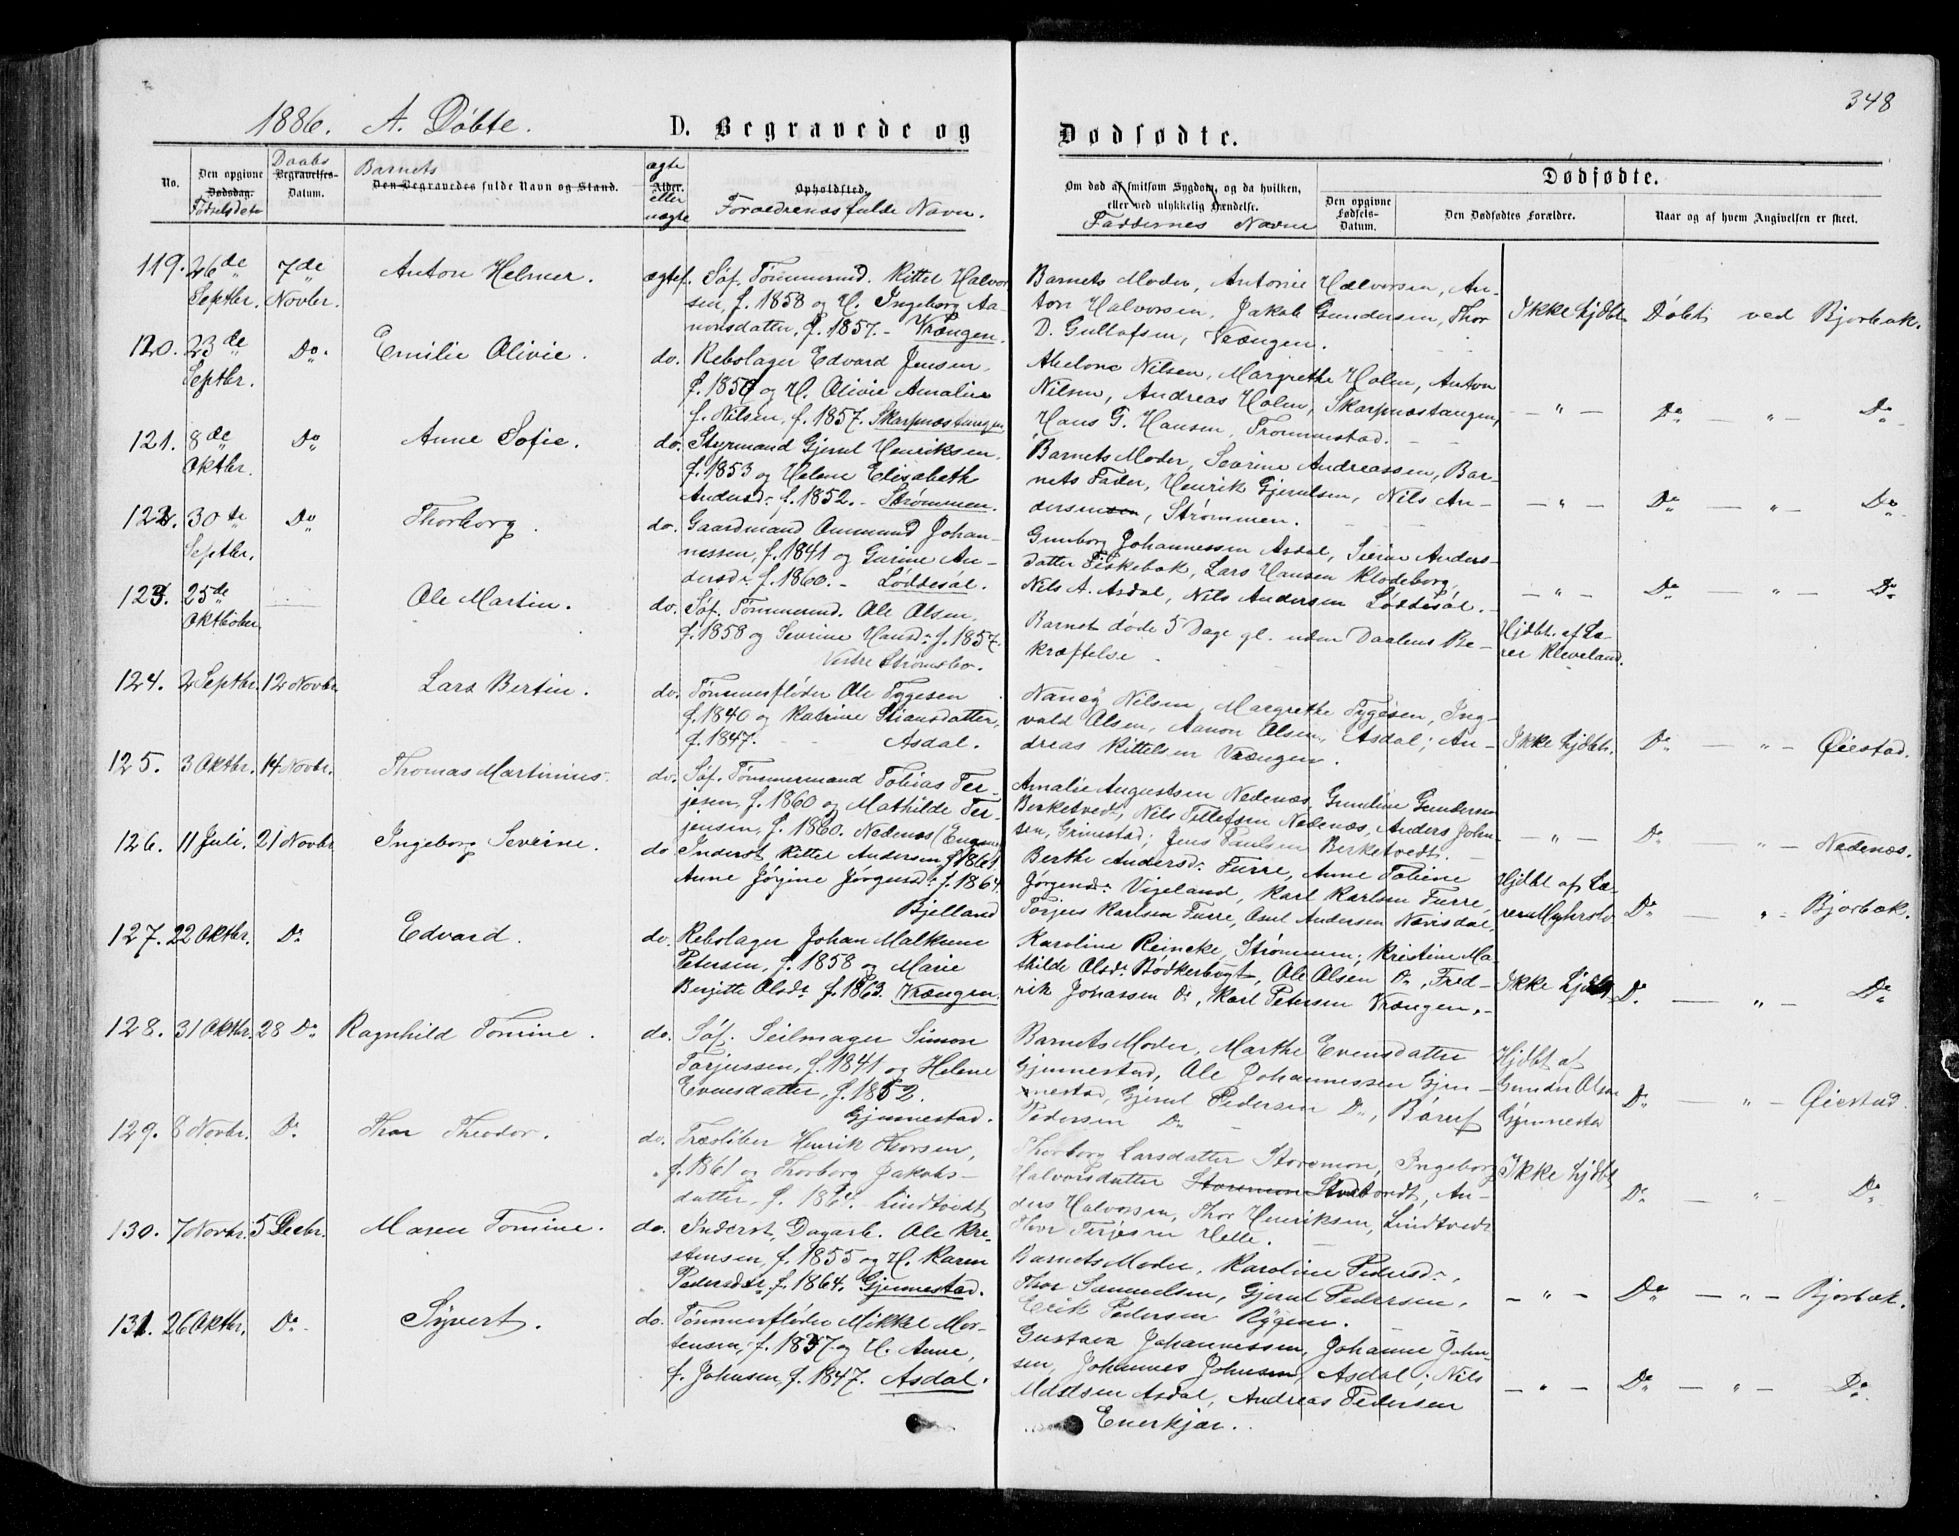 348
1886. A. Döbte.
D. Begravede og Dødfødte.
No.
Den opgivne Dødsdag. Fødselsdato
Daabs Begravelses-Datum.
Barnets Den Begravedes fulde Navn og Stand.
ægte Alder. eller uægte
Opholdsted. Forældrenes fulde Navn.
Om død af smitsom Sygdom, og da hvilken, eller ved ulykkelig Hændelse.
Faddernes Navne
Dødfødte.
Den opgivne Fødsels-Datum.
Den Dødfødtes Forældre.
Naar og af hvem Angivelsen er skeet.
119. 26de Septbr. 7de Novbr. Anton Helmer. ægtef.
Søf. Tømmermd. Kittel Halvor
sen, f. 1858 og H. Ingeborg Aa-
nonsdatter, f. 1857. - Vrængen.
Barnets Moder, Antonie Halvorsen, An-
ton Halvorsen, Jakob Gundersen, Thor
D. Gullofsen, Vrængen.
Ikke hjdbt. Döbt ved Bjorbæk.
120. 23de Septbr. Do. Emilie Olivie. do.
Rebslager Edvard Jensen,
f. 1857 og H. Olivie Amalie
f. Nilsen, f. 1857. Skarpnæstangen
Abelone Nilsen, Margrethe Holm, Anton
Nilsen, Andreas Holm, Skarpnæstangen,
Hans G. Hansen, Trommestad.
— " — Do — " — Do
121. 8de Oktbr. Do Anne Sofie. do.
Styrmand Gjerul Henriksen,
f. 1853 og Helene Elisabeth
Andersd: f. 1852. - Strømmen.
Barnets Moder, Sevrine Andreassen, Bar-
nets Fader, Henrik Gjerulsen, Nils An-
dersen, Strømmen.
— " — Do — " — Do
122. 30te Septbr. Do Thorborg. do.
Gaardmand Ommund Johan-
nessen, f. 1841 og Gurine An-
dersd: f. 1860. - Løddesøl.
Gunborg Johannessen Asdal, Sevrine Anders-
datter Fiskebæk, Lars Hansen Klodeborg,
Nils A. Asdal, Nils Andersen Løddesøl.
— " — Do — " — Do
123. 25de Oktbober Ole Martin. do.
Søf. Tømmermd. Ole Olsen,
f. 1858 og Sevrine Hansd: f. 1857.
Vestre Strømsbo.
Barnet døde 5 Dage gl. uden Daabens Be-
kræftelse.
Hjdbt. af Læ-
rer Kleveland.
124. 2 Septbr. 12 Novbr. Lars Bertin. do.
Tømmerfløder Ole Tygesen
f. 1840 og Katrine Stiansdatter,
f. 1847. - - Asdal.
Nancy Nilsen, Margrethe Tygesen, Ing-
vald Olsen, Aanon Olsen, Asdal; An-
dreas Kittelsen Vrængen.
Ikke hjdbt. Do — " — Øiestad.
125. 3 Oktbr. 14 Novbr. Thomas Martinius. do.
Søf. Tømmermand Tobias Ter-
jesen, f. 1860 og Mathilde Ter-
jensen, f. 1860. Nedenæs (Engene)
Amalie Augustsen Nedenæs, Gundine Gundersen
Berketvedt, Nils Tellefsen Nedenæs, Anders John-
sen, Grimestad; Jens Paulsen Berketvedt.
— " — Do — " — Nedenæs.
126. 11 Juli. 21 Novbr Ingeborg Severine. do
Inderst Kittel Andersen, f. 1861
Anne Jögine Jörgensd: f. 1864
Bjelland
Berthe Andersd: Furre, Anne Tobine
Jørgensd: Vigeland, Karl Karlsen Furre,
Torjus Karlsen Furre, Osul Andersen Nævisdal,
Hjdbt af Læ-
reren Do — " — Bjorbæk.
127. 22 Oktbr. Do Edvard. do.
Rebslager Johan Malkune
Petersen, f. 1858 og Marie
Bergitte Olsd: f. 1863. Vrængen.
Karoline Reincke, Strømmen; Kristine Ma-
thilde Olsd: Bødkerbugt, Ole Olsen Do, Fred-
rik Johassen Do, Karl Petersen Vrængen.
Ikke hjdbt Do — " — Do
128. 31 Oktbr. 28 Do Ragnhild Tomine. do.
Søf. Seilmager Simon
Torjussen, f. 1841 og Helene
Evensdatter, f. 1852.
Gjennestad.
Barnets Moder, Marthe Evensdatter
Gjennestad, Ole Johannessen Gjen-
nestad, Gjerul Pedersen Do, Böruf
Pedersen Do
Hjdbt af
Gunder Olsen
Gjennestad Do — " — Øiestad.
129. 8 Novbr. Do Thor Theodor. do.
Træsliber Henrik Thorsen,
f. 1861 og Thorborg Jakobs-
datter, f. 1861. Lindtvedt
Thorborg Larsdatter Storemon, Ingeborg
Halvorsdatter Storemon Stedtvedt, An-
ders Halvorsen, Thor Henriksen, Lindtvedt
Thor Terjesen Helle.
Ikke hjdbt
Do — " — Do
130. 7 Novbr. 5 Decbr. Maren Tomine. do.
Inderst, Dagarb. Ole Kri-
stensen, f. 1855 og H. Karen
Pedersdtr, f. 1864. Gjennestad.
Barnets Moder, Karoline Pedersd:,
Thor Samuelsen, Gjerul Pedersen,
Erik Pedersen Rygene.
— " — Do — " — Bjorbæk.
131. 26 Oktbr. Do Syvert. do.
Tømmerfløder Mikkel Mor-
tensen, f. 1837 og H. Anne,
f. Johnsen, f. 1847. Asdal.
Gustava Johannessen, Johanne John-
sen, Johannes Johnsen, Asdal; Nils
Asdal, Andreas Pedersen
Enerkjær.
— " — Do — " — Do